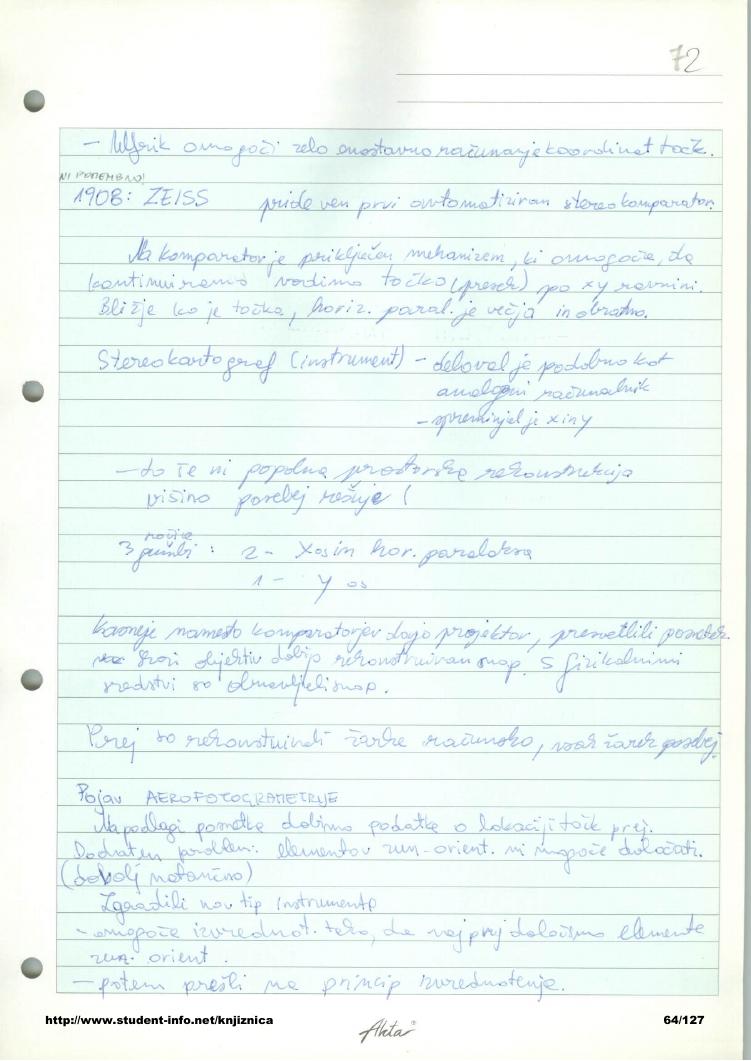 72
- Ulfrik omogoči zelo enostavno računanje koordinat točk.
NI POMEMBNO!
1908: ZEISS pride ven prvi avtomatiziran stereokomparator.
Na komparator je priključen mehanizem, ki omogoča, da
kontinuirano vodimo točko (presek) po xy ravnini.
Bližje ko je točka, horiz. paral. je večja in obratno.
Stereokartograf (instrument) - deloval je podobno kot
analogni računalnik
- spreminjal je x in y
- to še ni popolna prostorska rekonstrukcija
višino posebej rešuje!
ročice
3 gumbi : 2 - X os in hor. paralaksa
1 - y os
Kasneje namesto komparatorjev dajo projektor, presvetlili posnetek
skozi objektiv dobijo rekonstruiran snop. S fizikalnimi
sredstvi so obnavljali snop.
Prej so rekonstruirali žarke računsko, vsak žarek posebej.
Pojav AEROFOTOGRAMETRIJE
Na podlagi posnetka dobimo podatke o lokaciji točk prej.
Dodaten problem: elementov zun-orient. ni mogoče določati.
(dovolj natančno)
Zgradili nov tip instrumenta
- omogoča izvrednot. tako, da najprej določimo elemente
zun. orient.
- potem prešli na princip izvrednotenja.
http://www.student-info.net/knjiznica
Akta®
64/127